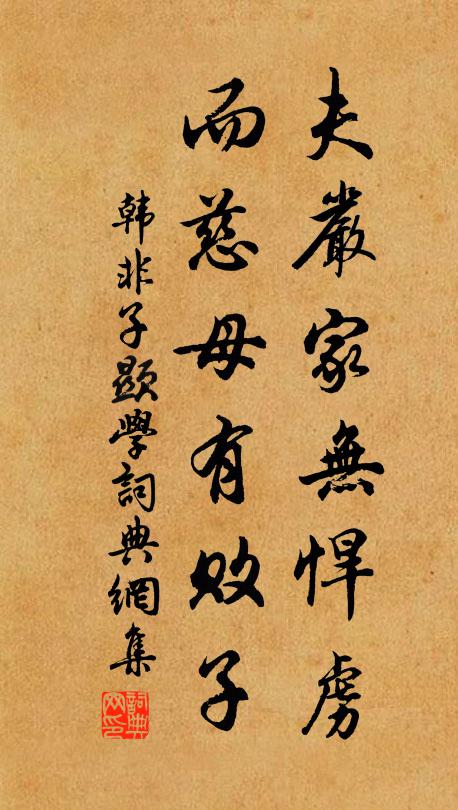 夫嚴家無悍虜
而慈母有敗子
韩非子顯學詞典網集
詞典
网印